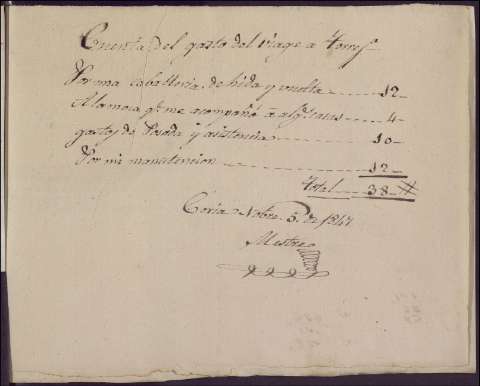 Cuenta del gasto del viage a Torres
Por una caballeria de hida y vuelta 12
A la moza q.e me acompañó a 4
gastos de Posada y asistencia 10
Por mi manutencion 12
Total 38
Coria Nobre. 5. de 1847
Mestre